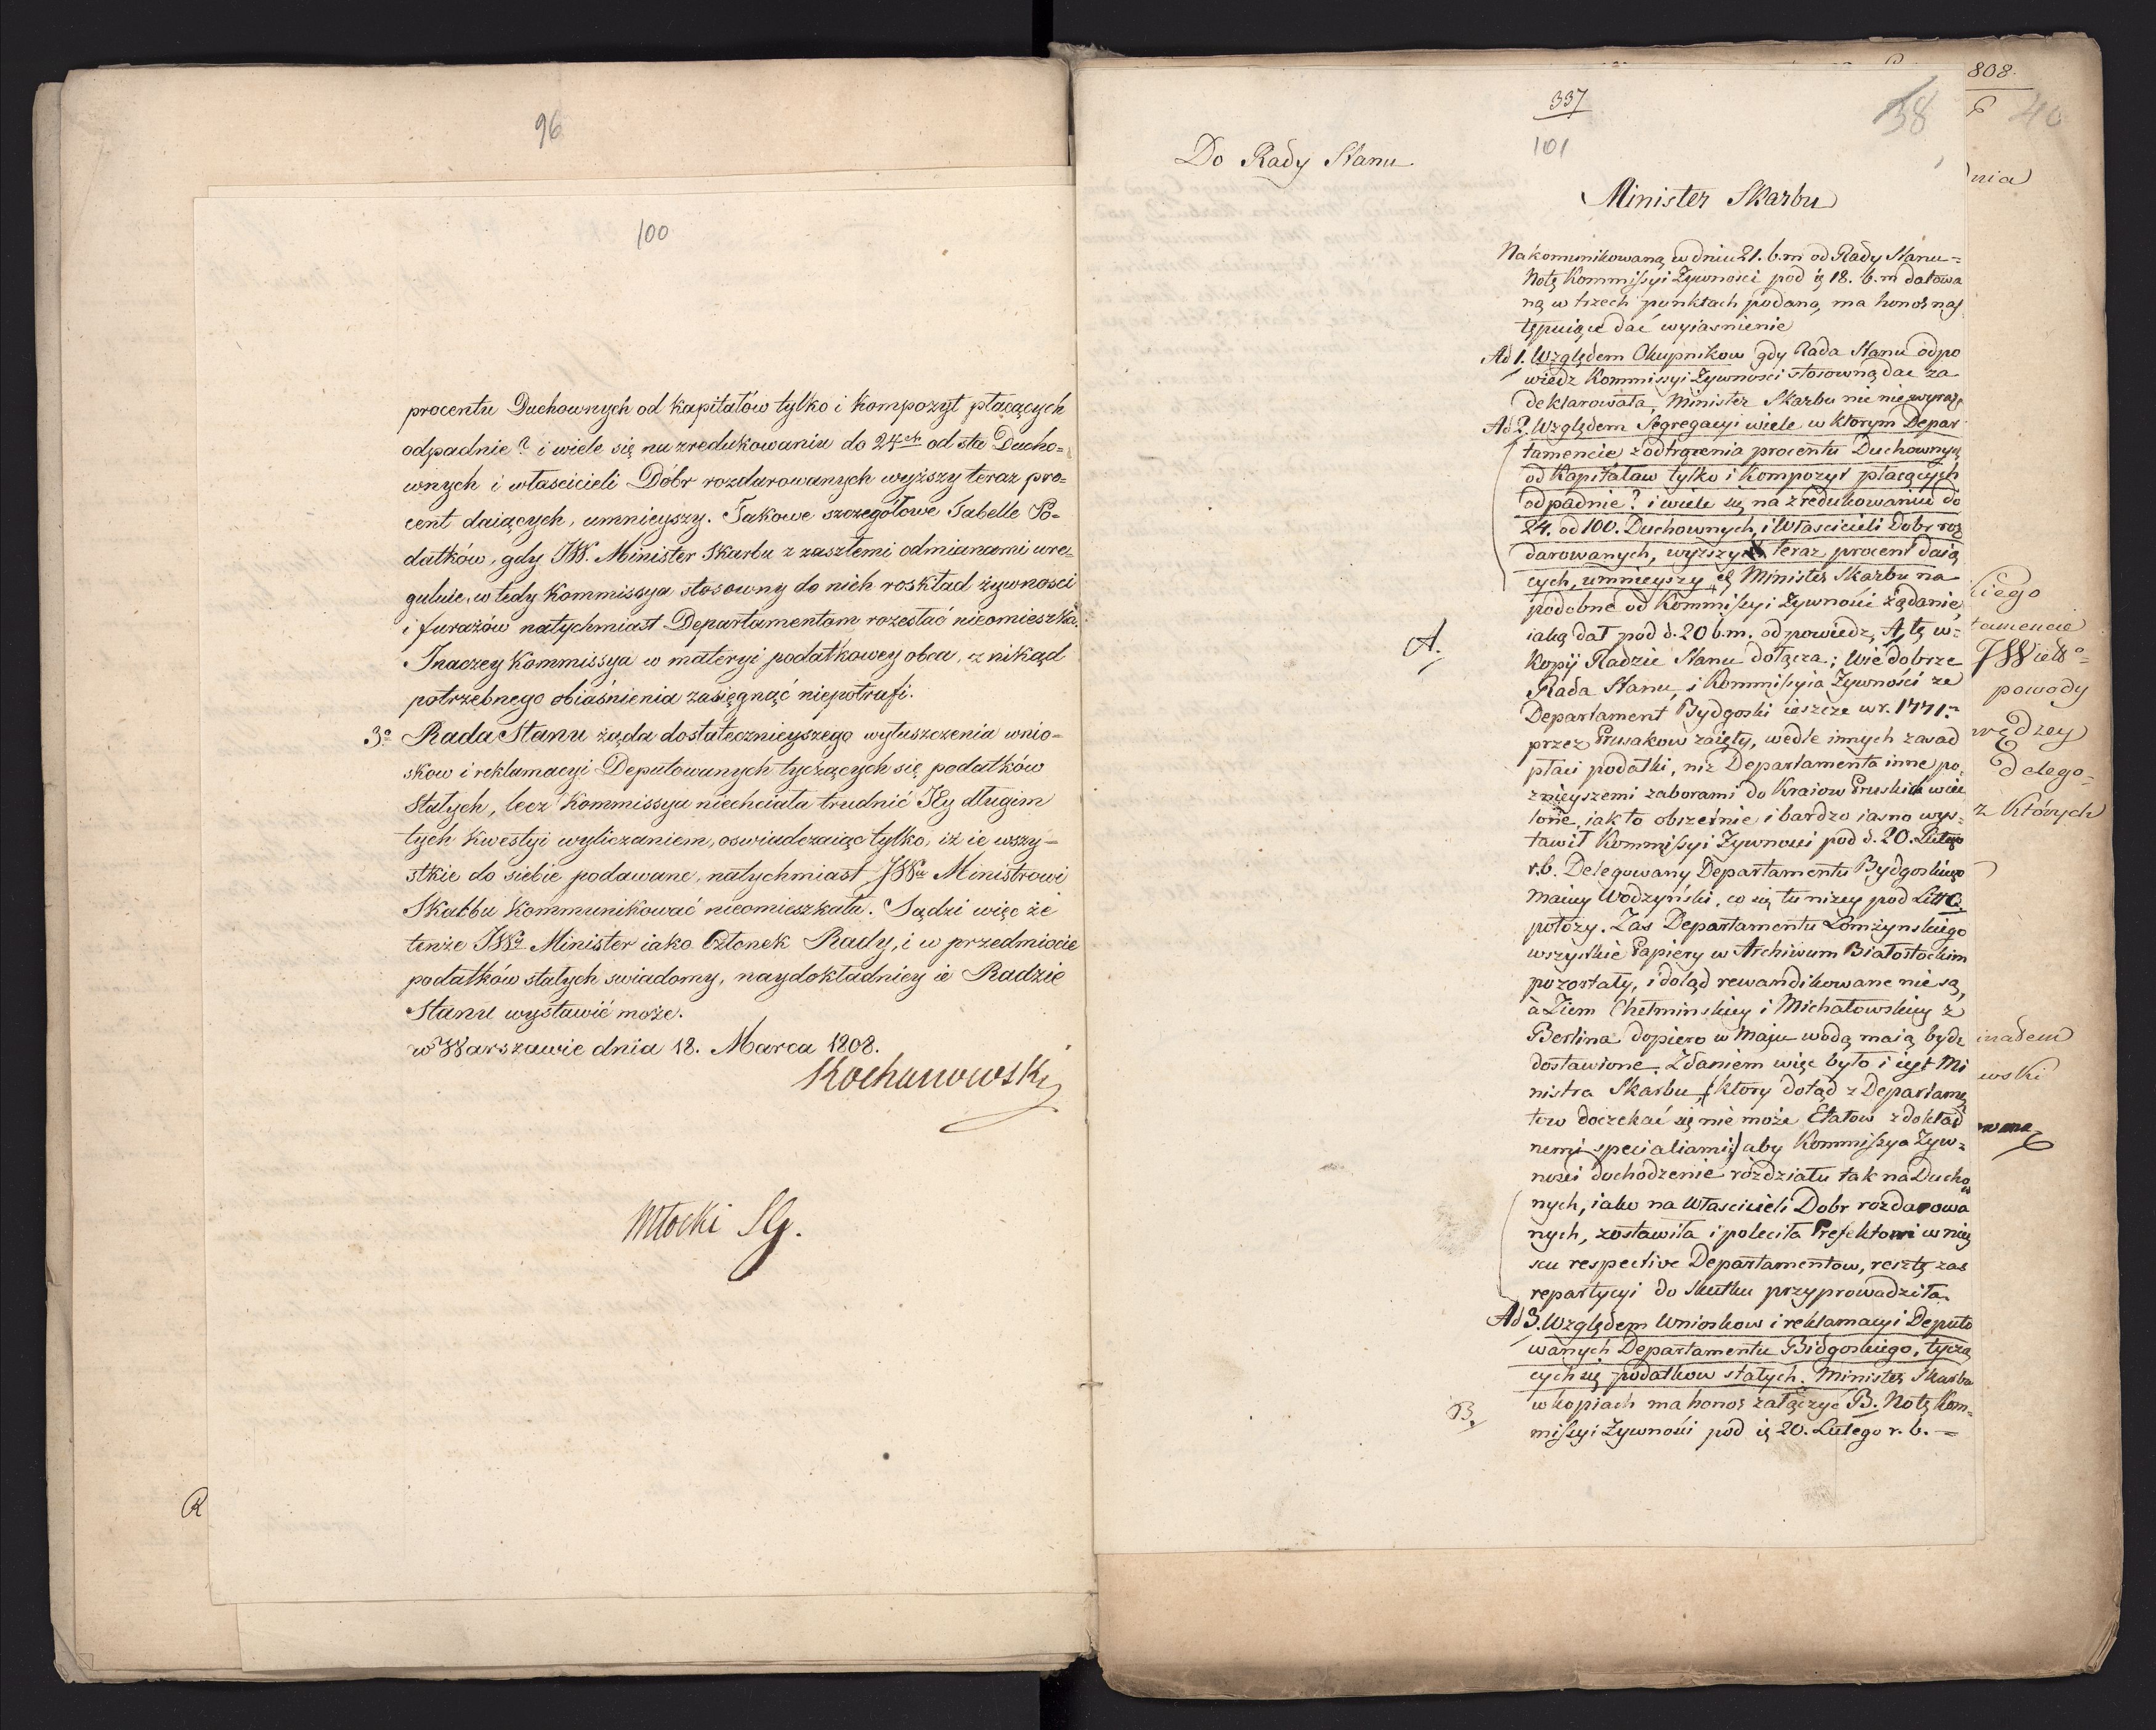 96
100
procentu Duchownych od kapitałów tylko i kompozyt płacących
odpadnie? i wiele się na zredukowaniu do 24ch od sta Ducho=
wnych i właścicieli Dóbr rozdarowanych wyższy teraz pro=
cent daiących, umnieyszy. Takowe szczegółowe Tabelle Po=
datków, gdy JW. Minister Skarbu z zaszłemi odmianami ure=
guluie, w tedy Kommissya stosowny do nich roskład żywności
i furażów natychmiast Departamentom rozesłać nieomieszka.
Inaczey Kommissya w materyi podatkowey obca, z nikąd
potrzebnego obiaśnienia zasięgnąć niepotrafi.
3o Rada Stanu żąda dostatecznieyszego wyłuszczenia wnio=
skow i reklamacyi Deputowanych tyczących się podatków
stałych, lecz Kommissya niechciała trudnić Jey długim
tych kwestyi wyliczaniem, oswiadczaiąc tylko, iż ie wszy=
stkie do siebie podawane, natychmiast JWu Ministrowi
Skarbu kommunikować nieomieszkała. Sądzi więc że
tenże JWy Minister iako Członek Rady, i w przedmiocie
podatków stałych swiadomy, naydokładniey ie Radzie
Stanu wystawić może.
w Warszawie dnia 18. Marca 1808.
Kochanowski
Młocki SG.
R
337
101
38
Do Rady Stanu
Minister Skarbu
Nakomunikowaną w dniu 21. b.m od Rady Stanu=
Notę Kommissyi Żywności pod ię 18. b.m datowa
ną w trzech punktach podaną, ma honor nas
tępuiące dać wyiasnienie
Ad 1. Względem Okupnikow gdy Rada Stanu odpo
wiedz Kommissyi Żywności stosowną dać za
deklarowała, Minister Skarbu nic nie wyraża
Ad 2. Względem Segregacyi wiele w którym Depar
tamencie z odtrącenia procentu Duchownych
od Kapitałow tylko i Kompozyt płacących
odpadnie? i wiele się na zredukowaniu do
24. od 100. Duchownych, i Właścicieli Dobr roz
darowanych, wyższy teraz procent daią
cych, umnieyszy się Minister Skarbu na
podobne od Kommissyi Żywności żądanie
A.
iaką dał pod d. 20 b.m. odpowiedz, A, tę w=
kopij Radzie Stanu dołącza; Wie dobrze
Rada Stanu, i Kommissyia Żywności ze
Departament Bydgoski ieszcze w r. 1771.
przez Prusakow zaięty, wedle innych zasad
płaci podatki, niż Departamenta inne po
znieyszemi zaborami do Kraiow Pruskich wcie
lone, iak to obszernie i bardzo iasno wys=
tawił Kommissyi Żywności pod d. 20. Lutego
r.b. Delegowany Departamentu Bydgoskiego
Maciey Wodzyński, co się tu niżey pod Litt C.
położy. Zas Departamentu Łomżynskiego
wszystkie Papiery w Archiwum Białostockim
pozostały, i dotąd rewandikowane nie są,
à Ziem Chełminskiey i Michałowskiey z
Berlina dopiero w Maju wodą maią bydz
dostawione. Zdaniem więc było i iest Mi
nistra Skarbu (który dotąd z Departamę
tow doczekać się nie może Etatow z dokład
nemi specialiami) aby Kommissya Żyw=
ności dochodzenie rozdziału tak na Duchow
nych, iako na Właścicieli Dobr rozdarowa
nych, zostawiła i poleciła Prefektom w miey
scu respective Departamentow, resztę zas
repartycyi do skutku przyprowadziła.
Ad 3. Względem Wnioskow i reklamacyi Deputo
wanych Departamentu Bidgoskiego, tyczą
cych się podatkow stałych. Minister Skarbu
B.
w kopiach ma honor załączyć B. Notę Kom=
missyi Żywności pod ię 20. Lutego r.b. =
808.
6
40
nia
kiego
tamencie
JWielo=
powody
wędzey
delego=
z których
nadem
wski